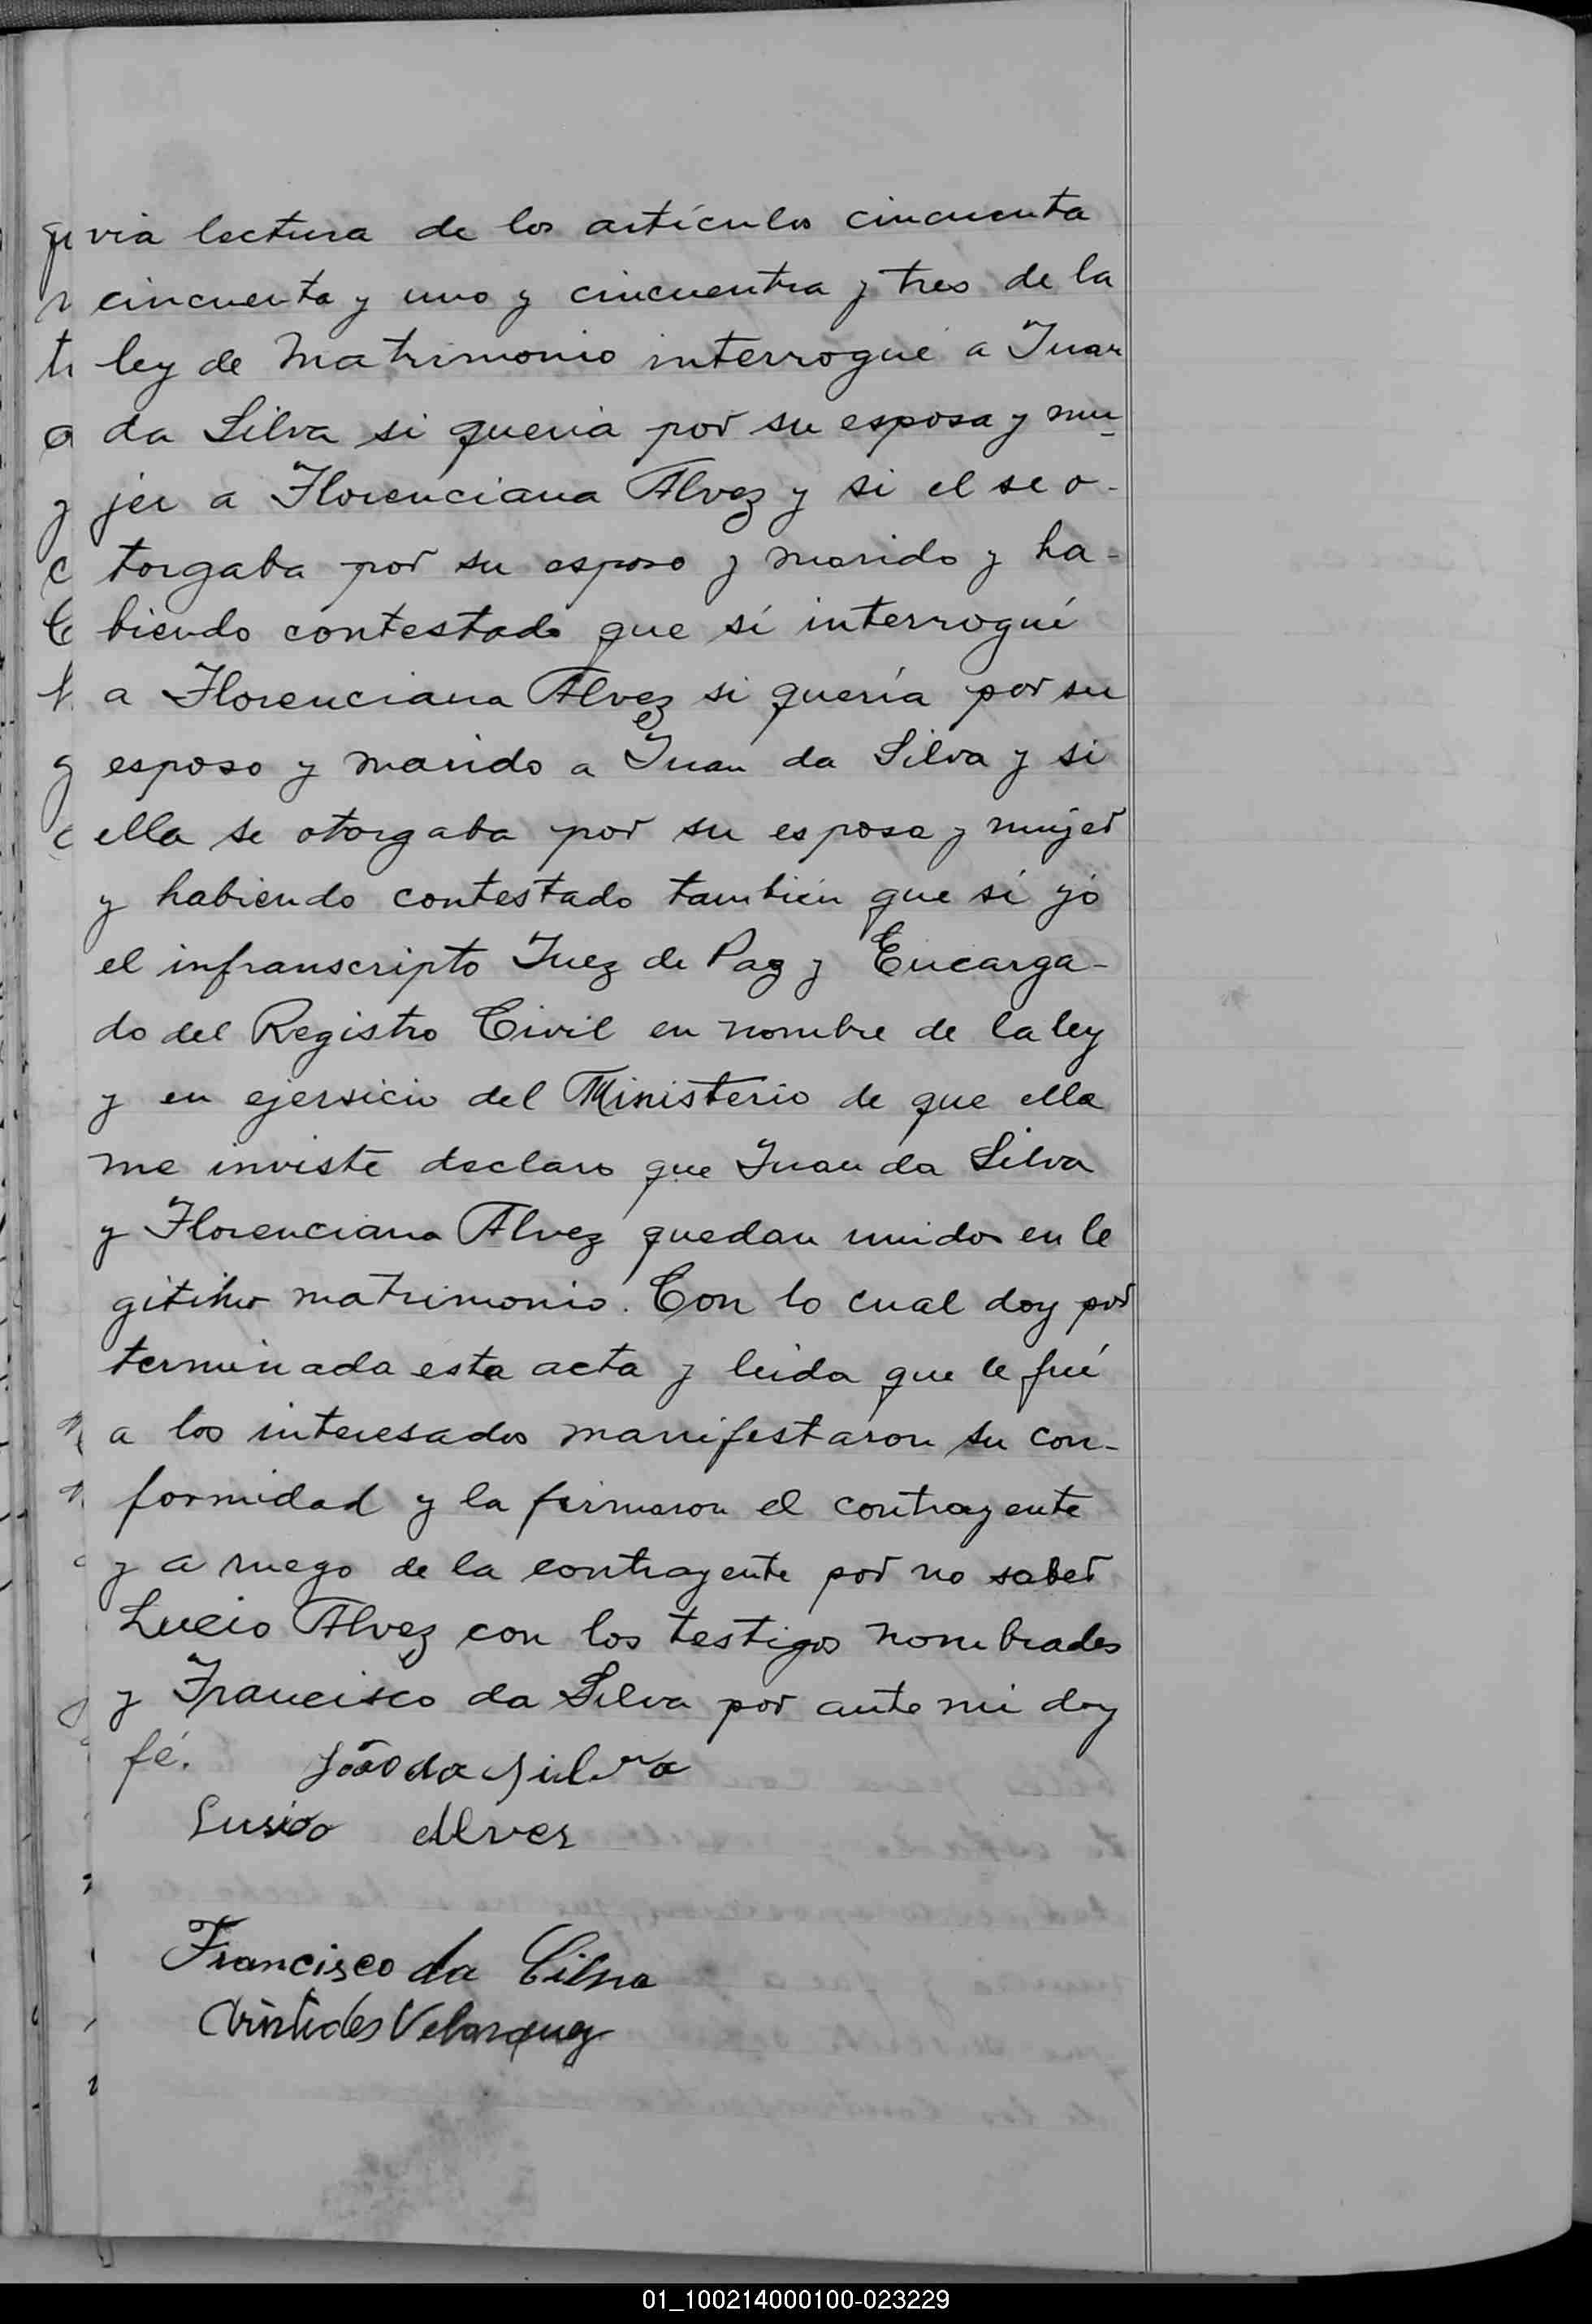 via lectura de los artículos cincuenta
cincuenta y uno y cincuentra y tres de la
ley de Matrimonio interrogué a Juan
da Silva si queria por su esposa y mu
jer a Florenciana Alvez y si el se o-
torgaba por su esposo y marido y ha-
biendo contestado que sí interrogué
a Florenciana Alvez si quería por su
esposo y marido a Juan da Silva y si
ella se otorgaba por su esposa y mujer
y habiendo contestado también que sí yó
el infranscripto Juez de Paz y Encarga-
do del Registro Civil en nombre de la ley
y en ejersicio del Ministerio de que ella
me inviste declaro que Juan da Silva
y Florenciana Alvez quedan unidos en le
gitimo matrimonio. Con lo cual doy por
terminada esta acta y leida que le fué
a los interesados manifestaron su con-
formidad y la firmaron el contrayente
y a ruego de la contrayente por no saber
Lucio Alvez con los testigos nombrados
y Francisco da Silva por ante mi doy
fé. João da Silva
Lusio Alves
Francisco da Cilva
Aristides Velazquez
01_100214000100-023229